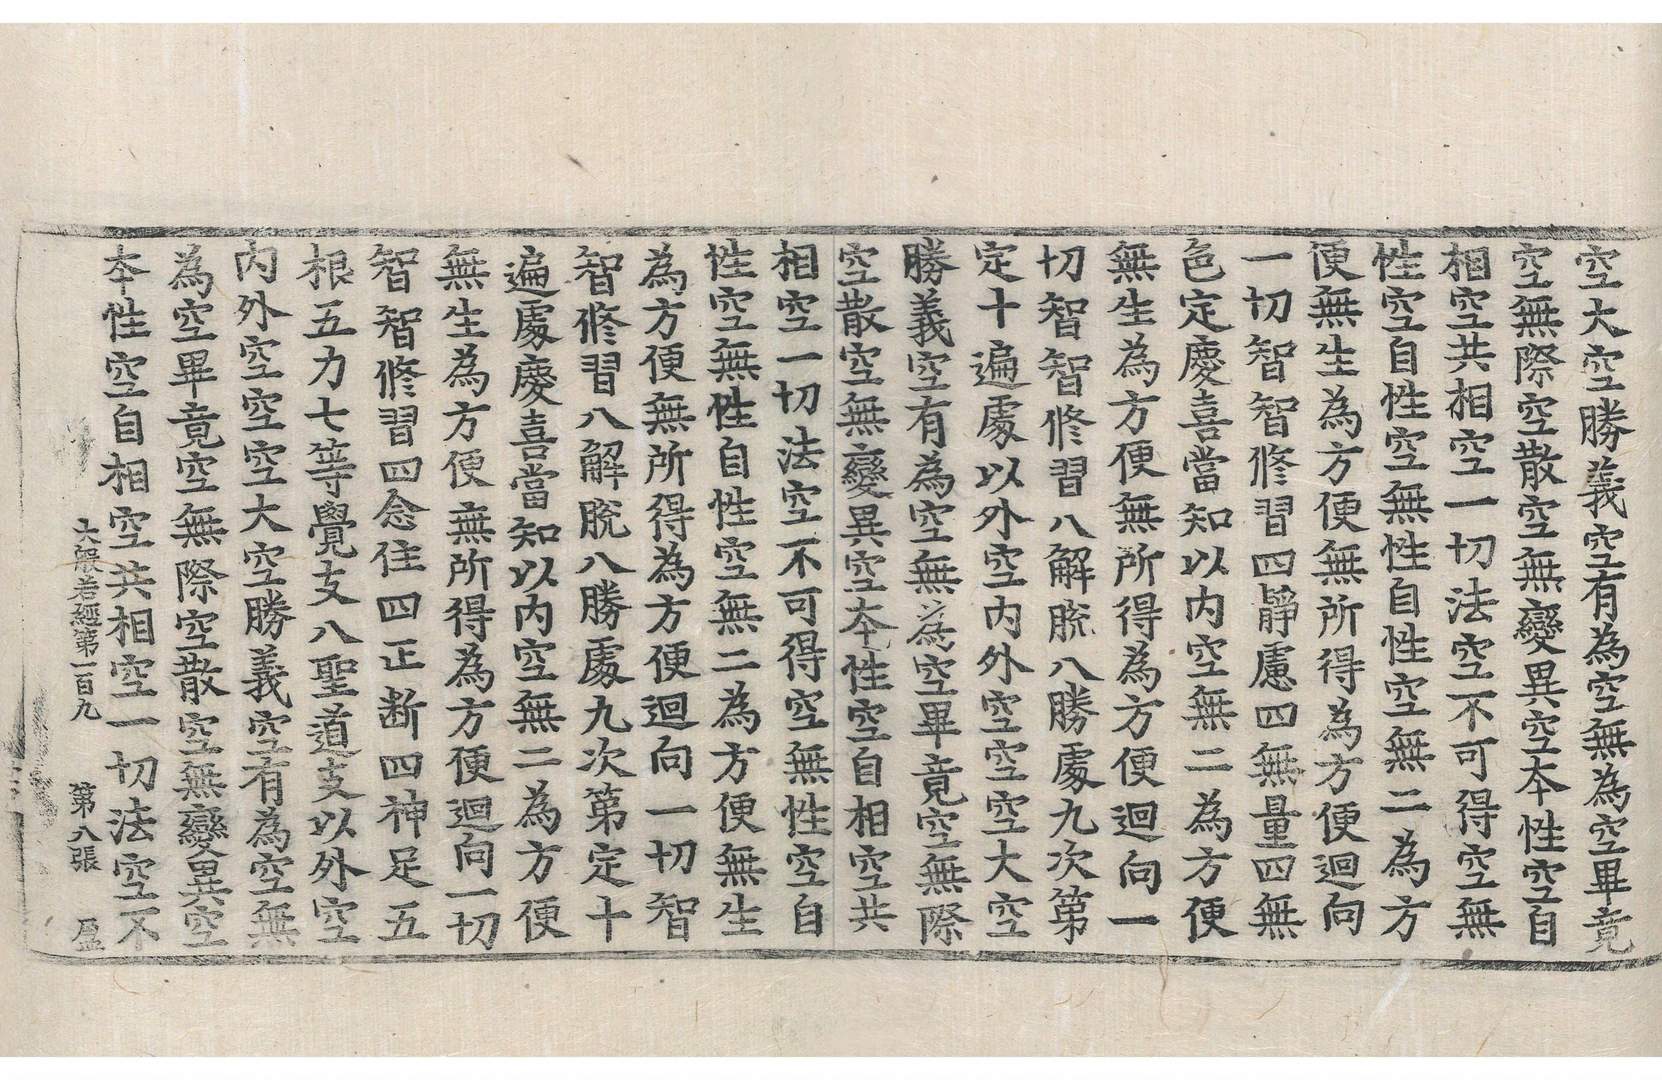 空大空勝義空有為空無為空畢竟
空無際空散空無變異空本性空自
相空共相空一切法空不可得空無
性空自性空無性自性空無二為方
便無生為方便無所得為方便迴向
一切智智修習四靜慮四無量四無
色定慶喜當知以內空無二為方便
無生為方便無所得為方便迴向一
切智智修習八解脫八勝處九次第
定十遍處以外空內外空空空大空
勝義空有為空無為空畢竟空無際
空散空無變異空本性空自相空共
相空一切法空不可得空無性空自
性空無性自性空無二為方便無生
為方便無所得為方便迴向一切智
智修習八解脫八勝處九次第定十
遍處慶喜當知以內空無二為方便
無生為方便無所得為方便迴向一切
智智修習四念住四正断四神足五
根五力七等覺支八聖道支以外空
內外空空空大空勝義空有為空無
為空畢竟空無際空散空無變異空
本性空自相空共相空一切法空不
大般若經第一百九 第八張 盈